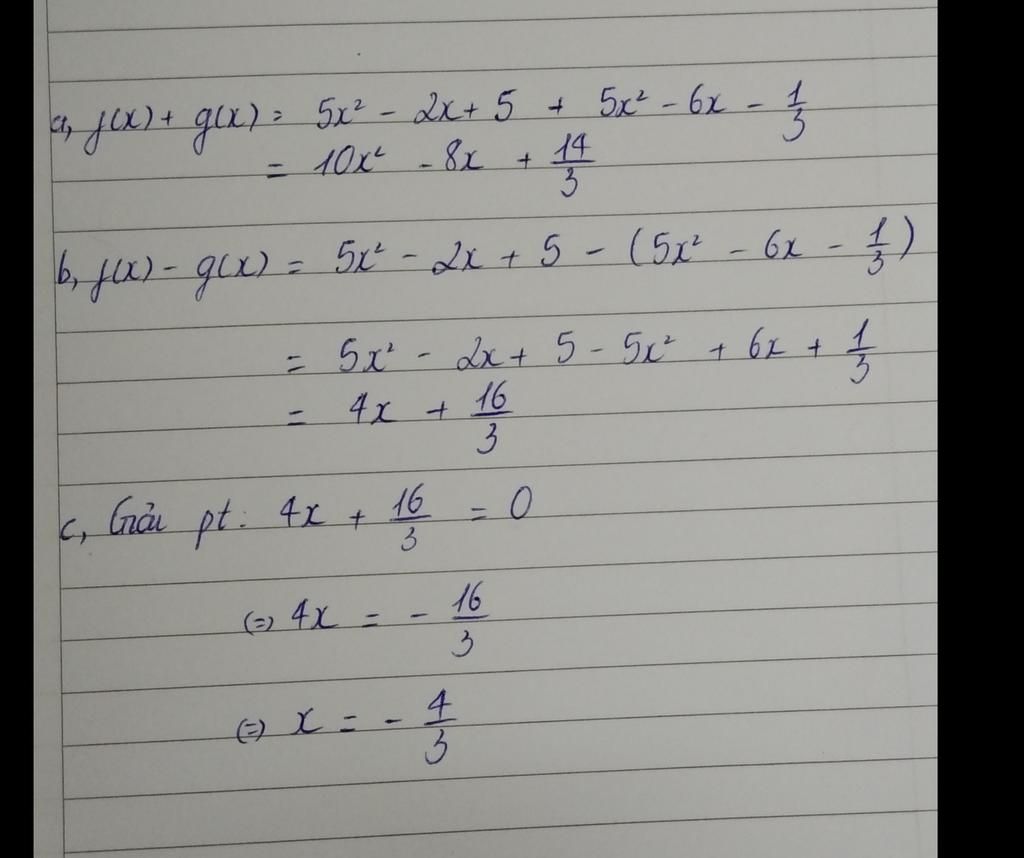 a, f(x) + g(x) = 5x² - 2x + 5 + 5x² - 6x - 1/3
= 10x² - 8x + 14/3
b, f(x) - g(x) = 5x² - 2x + 5 - (5x² - 6x - 1/3)
= 5x² - 2x + 5 - 5x² + 6x + 1/3
= 4x + 16/3
c, Giải pt: 4x + 16/3 = 0
(=) 4x = - 16/3
(=) x = - 4/3